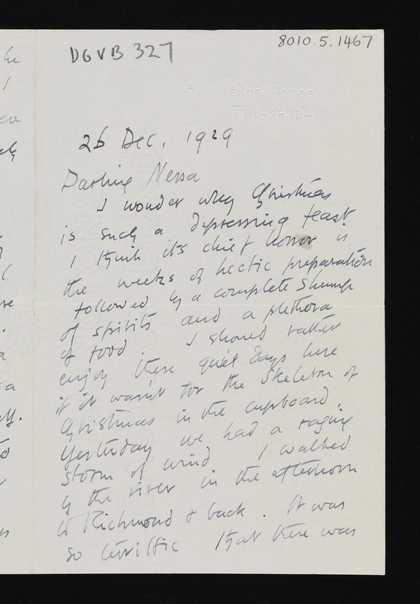 DGVB 327
8010.5.1467
26 Dec. 1929
Darling Nessa
I wonder why Christmas
is such a depressing feast.
I think its chief horror is
the weeks of hectic preparation
followed by a complete slump
of spirits and a plethora
of food. I should rather
enjoy these quiet days here
if it wasn't for the skeleton of
Christmas in the cupboard.
Yesterday we had a raging
storm of wind. I walked
by the river in the afternoon
to Richmond & back. It was
so terrific that there was